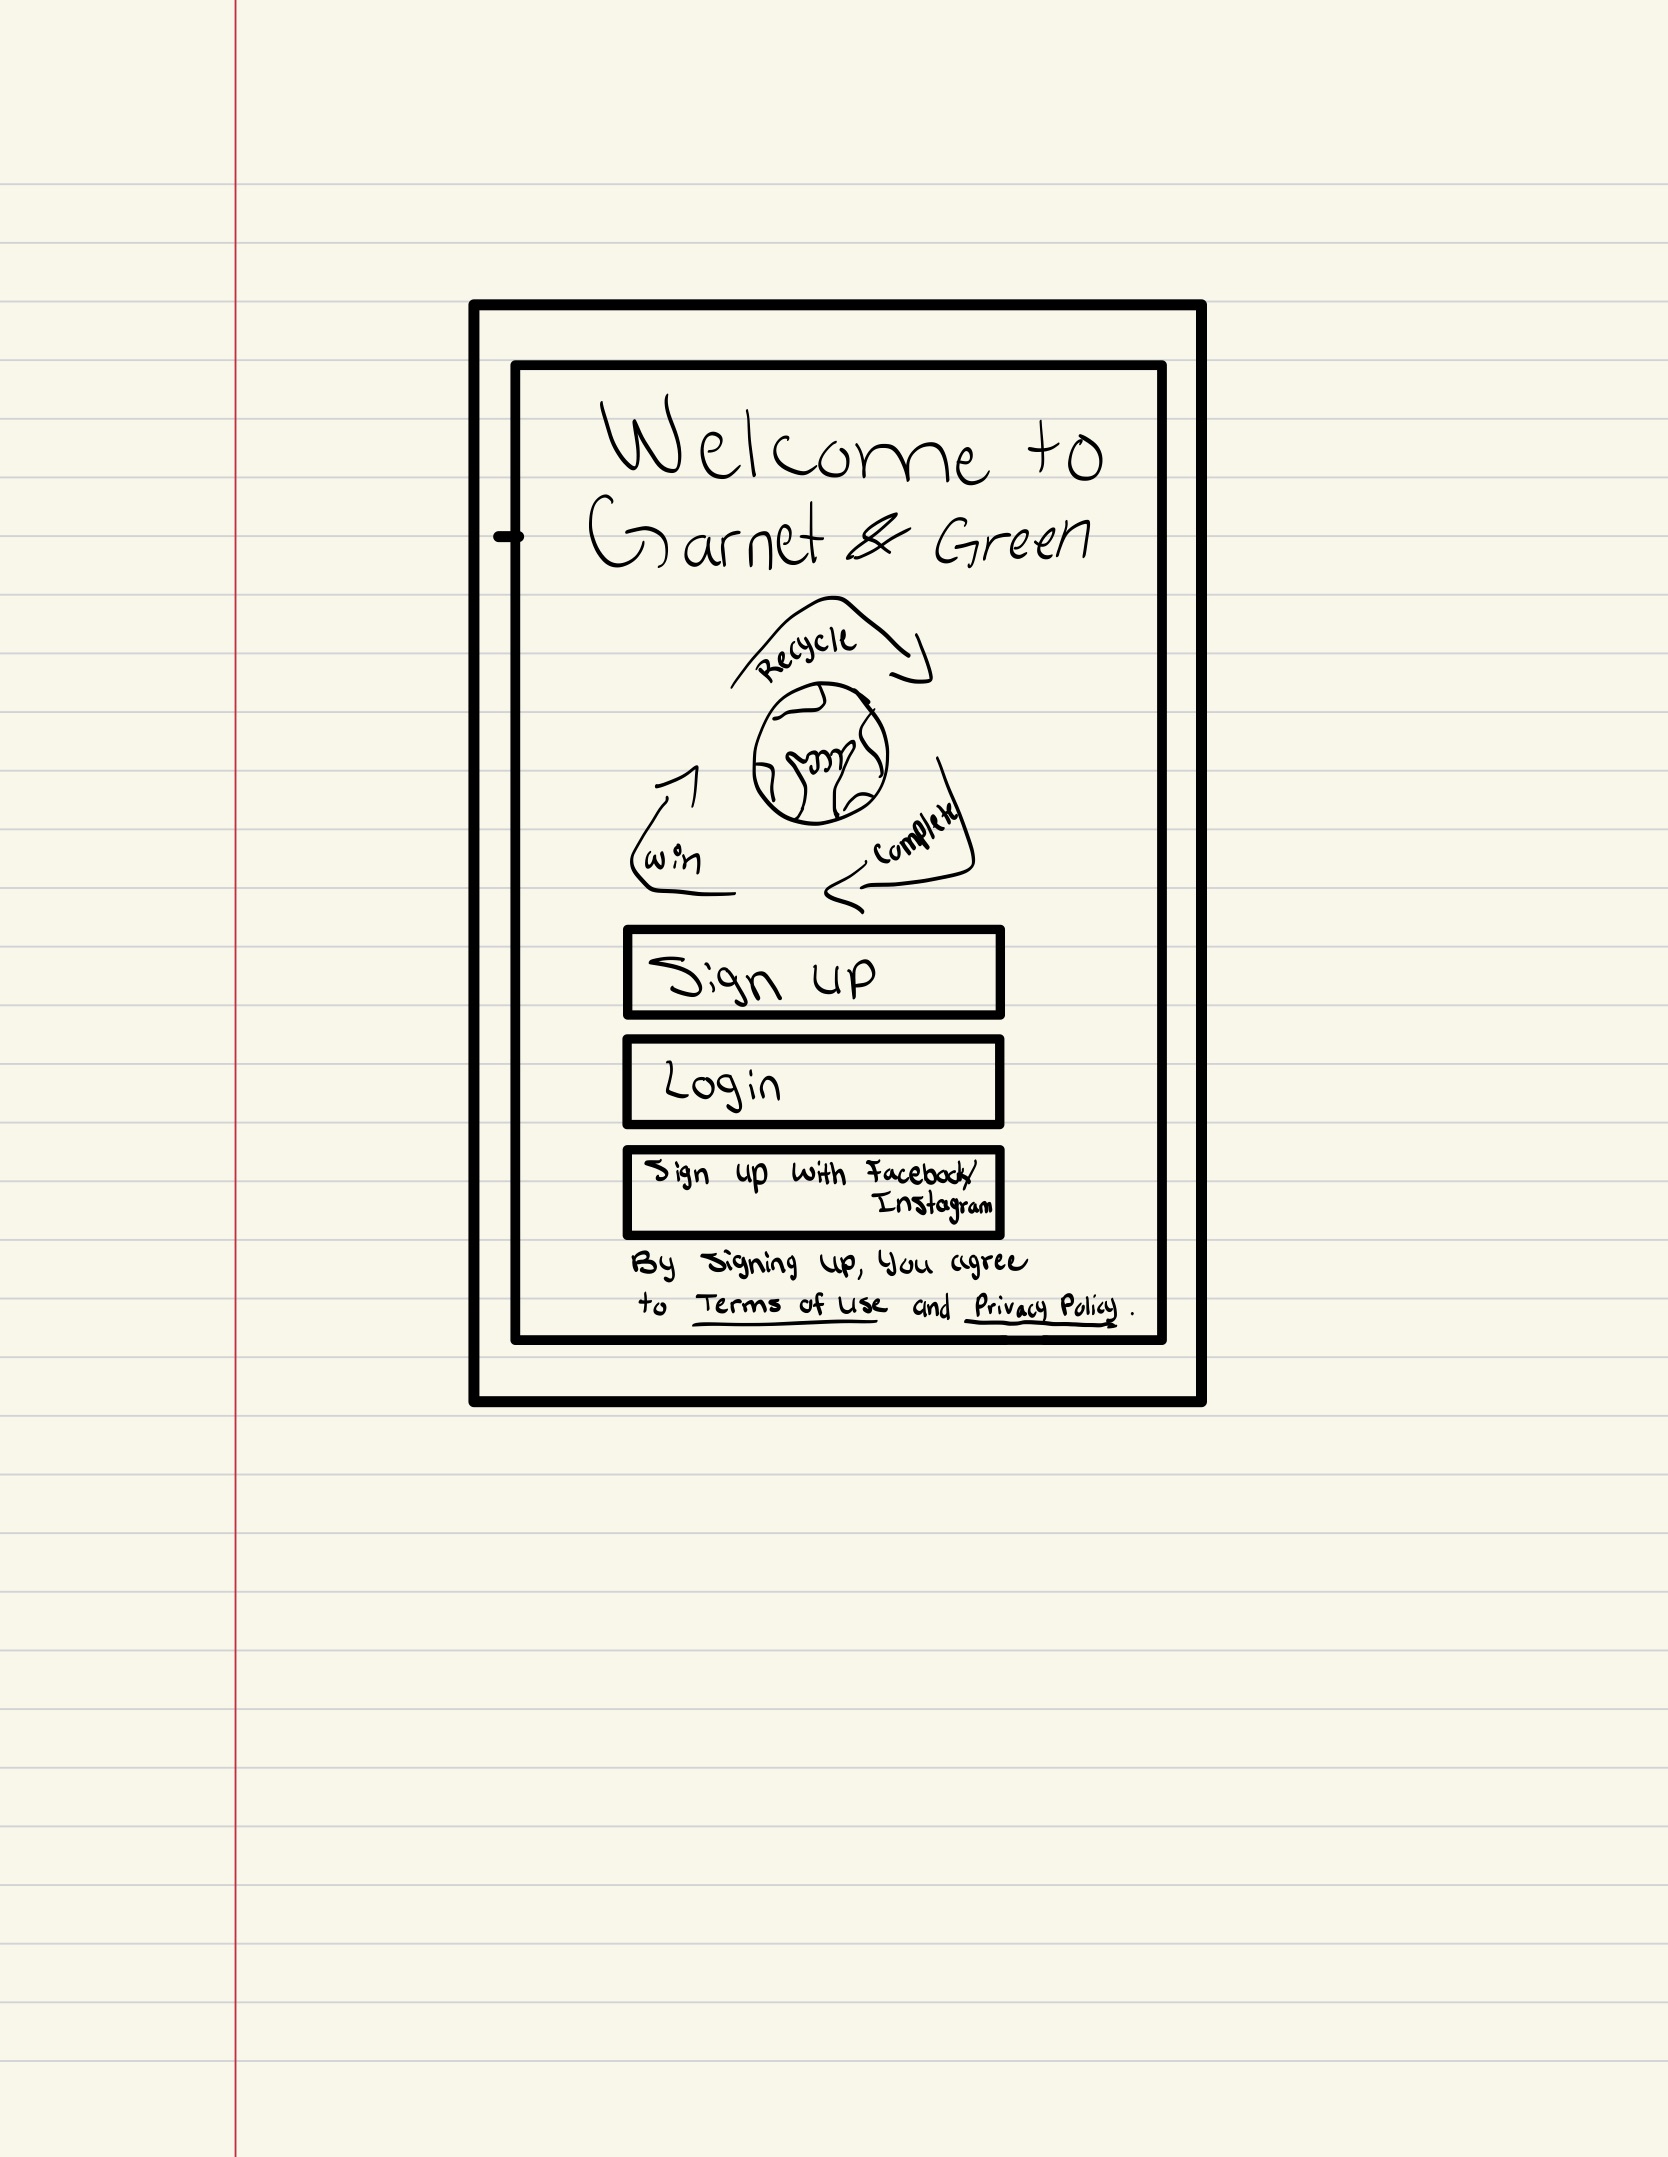 Welcome to
Garnet & Green
Recycle
Complete
Win
Sign up
Login
Sign up with Facebook/
Instagram
By Signing up, You agree
to Terms of Use and Privacy Policy.